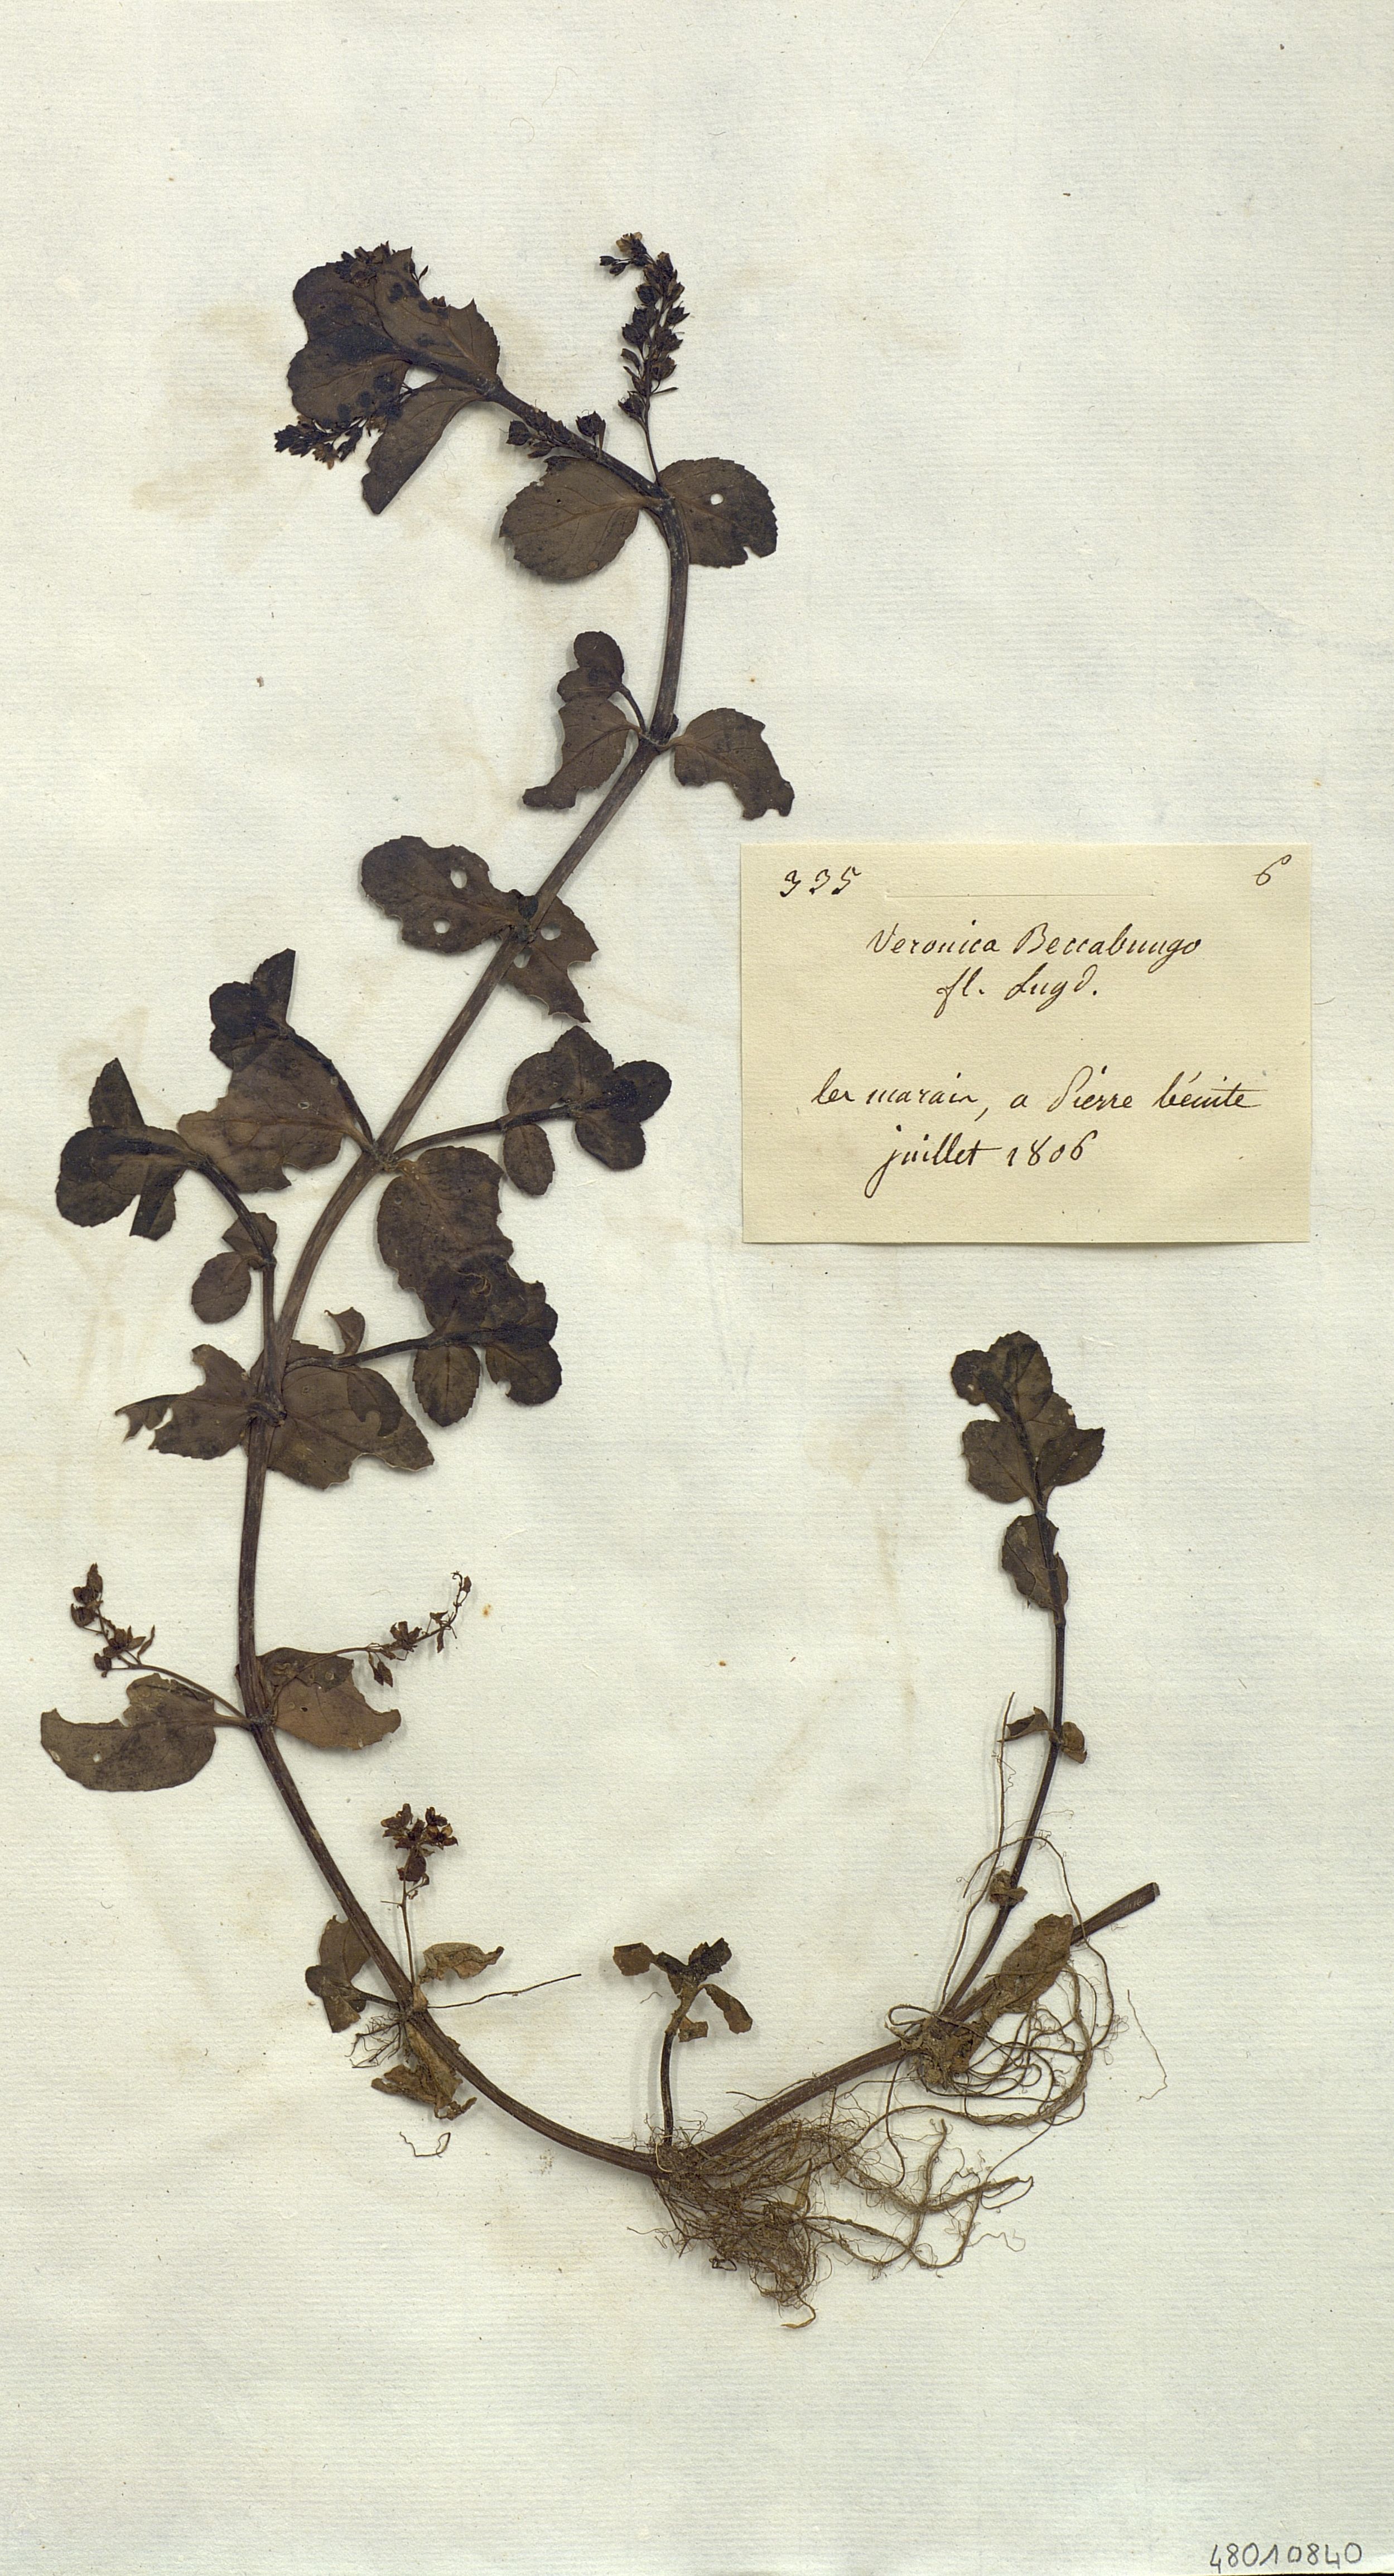 335 6
Veronica Beccabungo
fl. Lugd.
les marais, a Pierre bénite
juillet 1806
48010840